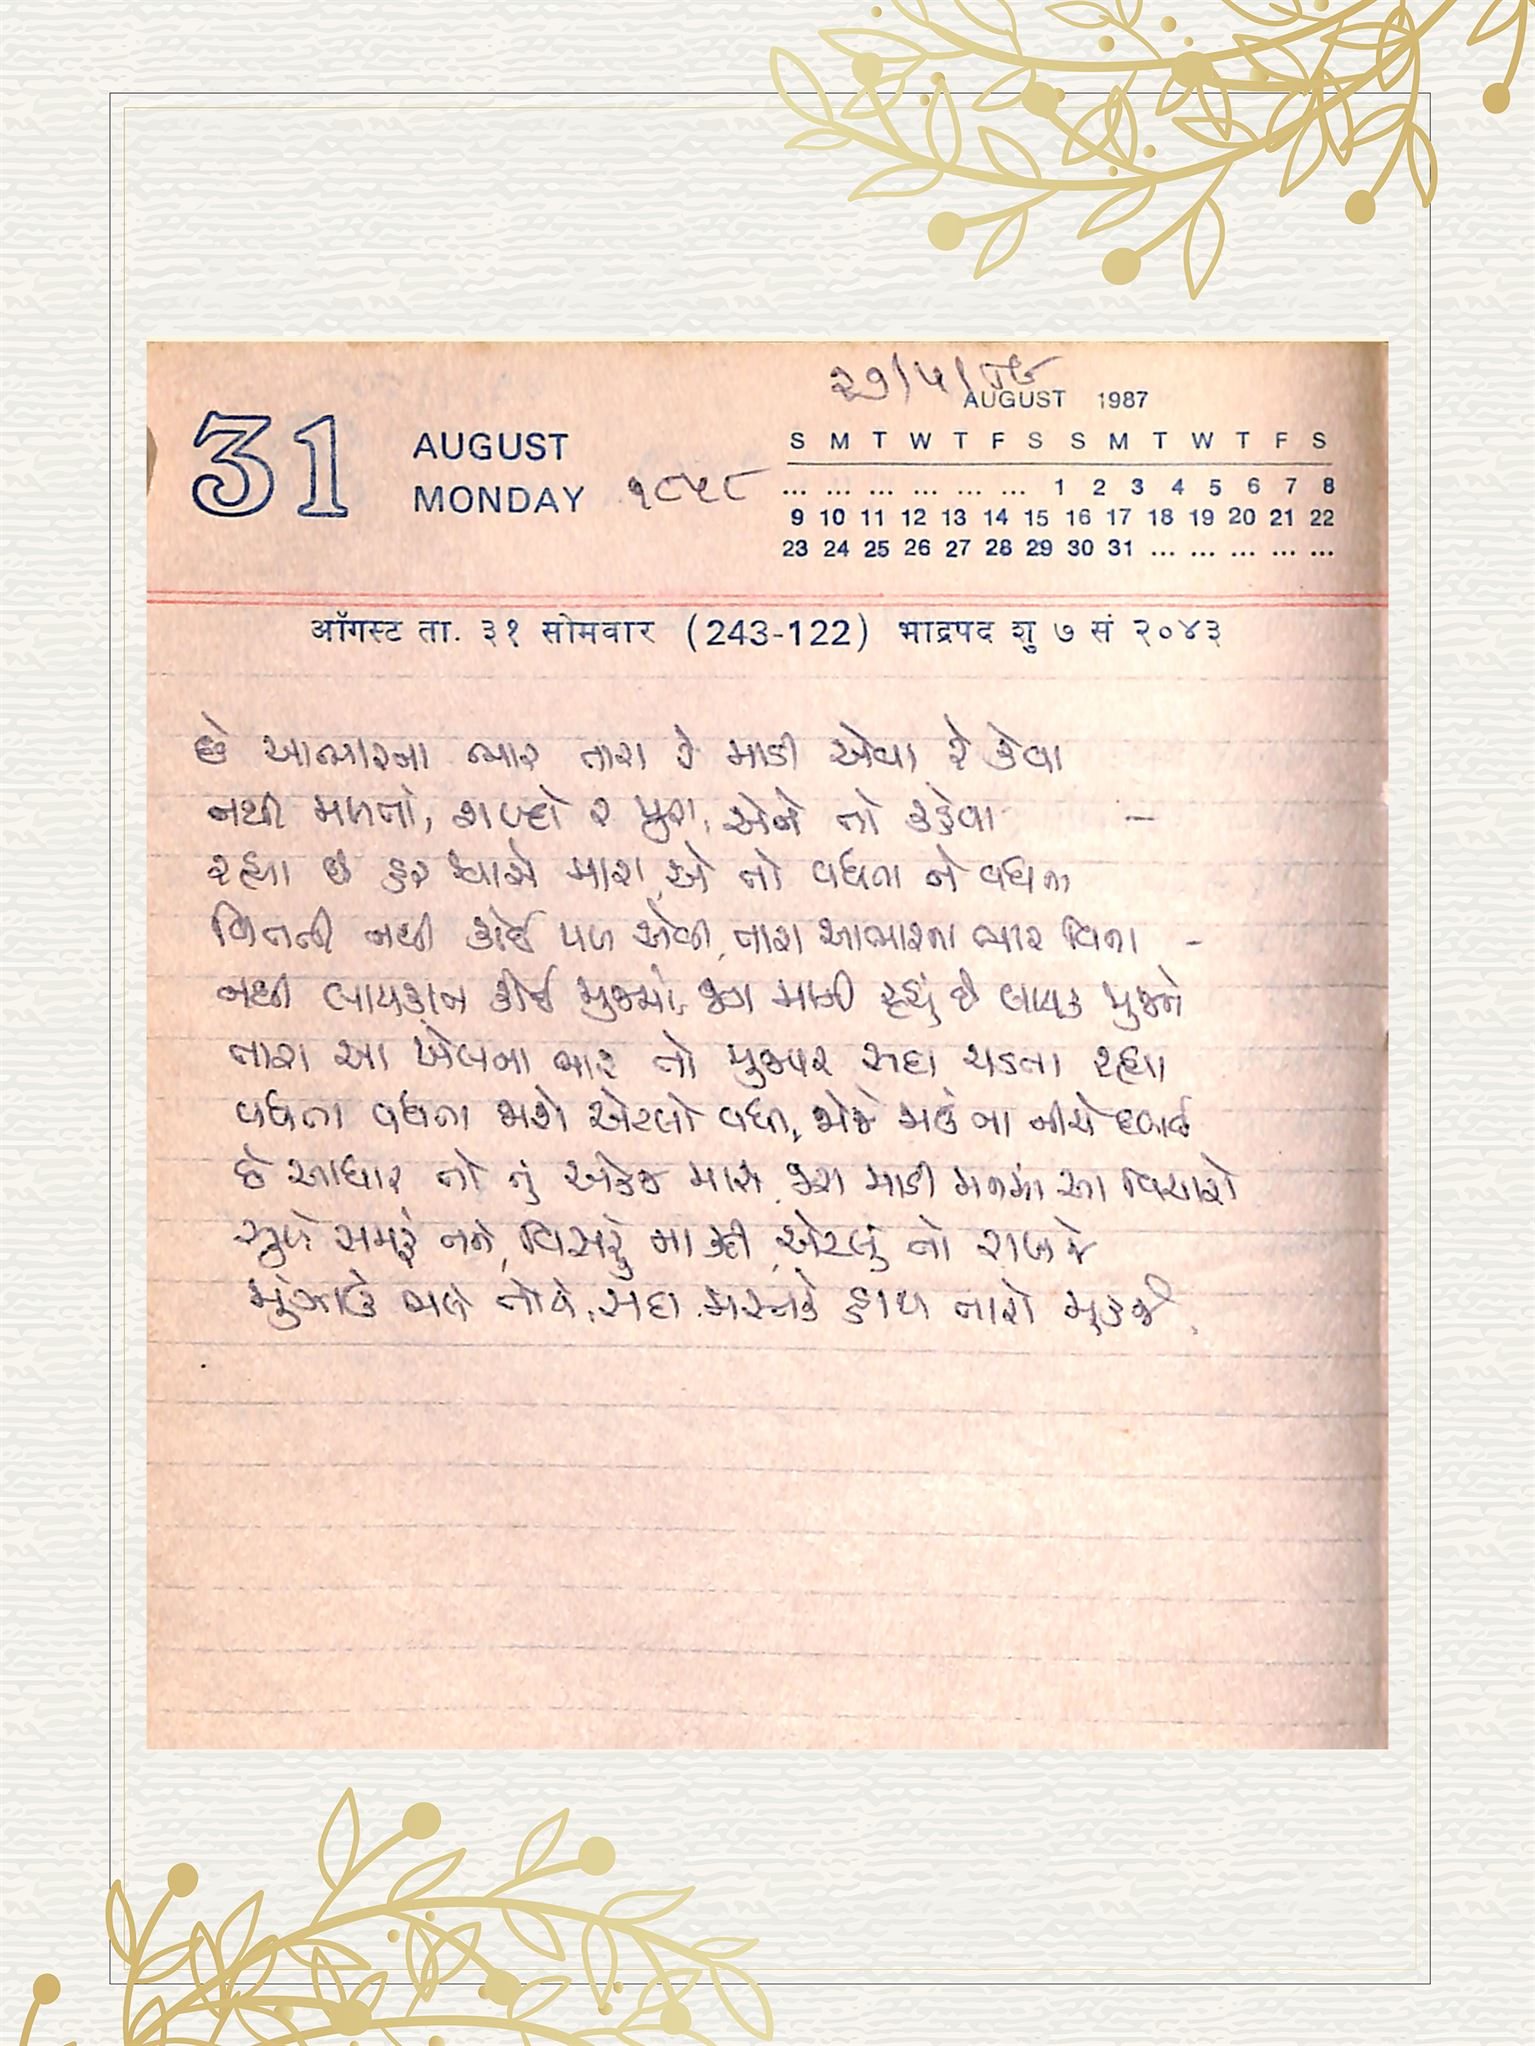 ૨૭/૫/૮૯
AUGUST 1987
31 AUGUST
MONDAY ૧૮૫૮
S M T W T F S S M T W T F S
... ... ... ... ... ... 1 2 3 4 5 6 7 8
9 10 11 12 13 14 15 16 17 18 19 20 21 22
23 24 25 26 27 28 29 30 31 ... ... ... ... ...
ऑगस्ट ता. ३१ सोमवार (243-122) भाद्रपद शु ७ सं २०४३
છે આભારના ભાર તારા રે માડી એવા રે કેવા
નથી મળતા, શબ્દો રે પુરા, એને તો કહેવા -
રહ્યા છે હર શ્વાસે મારા, એ તો વધતા ને વધતા
વિતતી નથી કોઈ પળ એવી, તારા આભારના ભાર વિના -
નથી લાયકાત કોઈ મુજમાં, જગ માની રહ્યું છે લાયક મુજને
તારા આ ખેલના ભાર તો મુજપર સદા ચડતા રહ્યા
વધતા વધતા જાશે એટલો વધી, જોજે ના નીચે દબાઈ
છે આધાર તો તું એકજ મારો, જરા માડી મનમાં આ વિચારો
સમરું તને, વિસરું ના કદી, એટલું તો રાખજે
મુંઝાઉં ભલે તોયે, સદા મસ્તકે હાથ તારો મૂકજે.